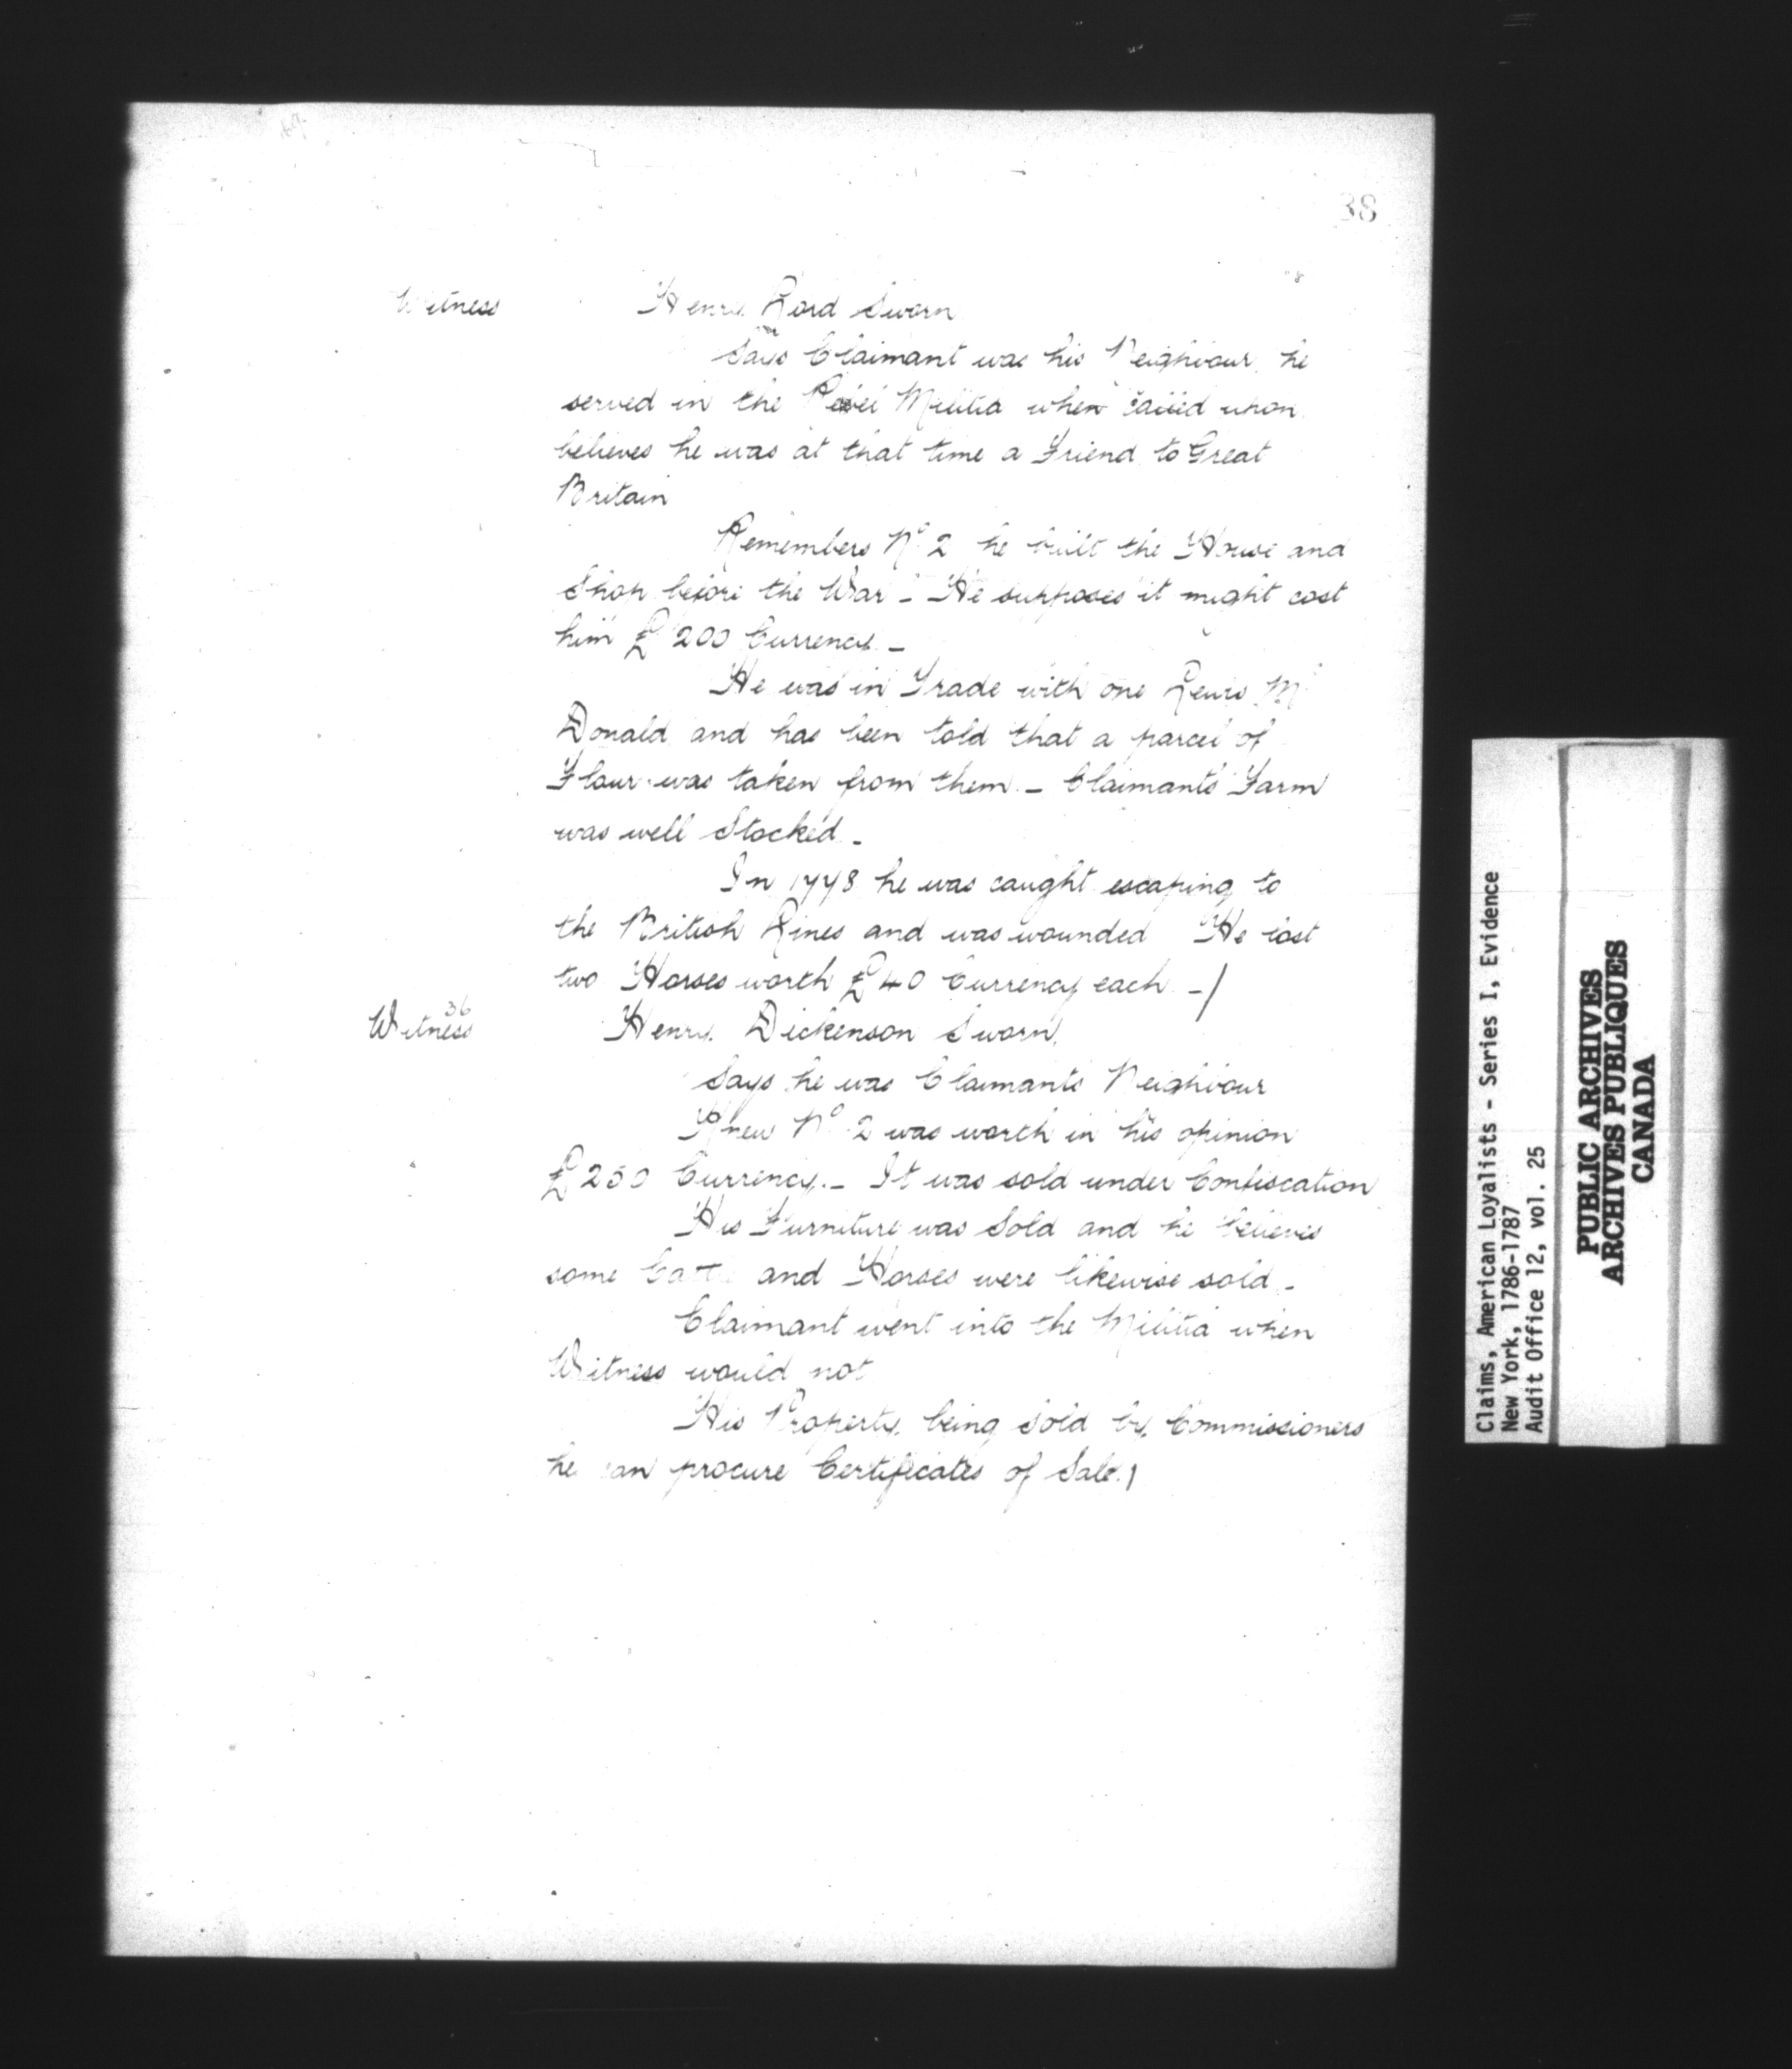 38
Witness Henry Lord Sworn
Says Claimant was his Neighbour, he
served in the Rebel Militia when called upon
believes he was at that time a Friend to Great
Britain
Remembers No 2 he built the House and
Shop before the War - He supposes it might cost
him £200 Currency -
He was in Trade with one Lewis Mc
Donald and has been told that a parcel of
Flour was taken from them - Claimants Farm
was well Stocked -
In 1778 he was caught escaping to
the British Lines and was wounded He lost
two Horses worth £40 Currency each -/
36
Witness Henry Dickenson Sworn,
Says he was Claimants Neighbour
Knew No 2 was worth in his opinion
£250 Currency - It was sold under Confiscation
His Furniture was Sold and he believes
some Cattle and Horses were likewise sold -
Claimant went into the Militia when
Witness would not
His Property being sold by Commissioners
he can procure Certificates of Sale /
Claims, American Loyalists - Series I, Evidence
New York, 1786-1787
Audit Office 12, vol. 25
PUBLIC ARCHIVES
ARCHIVES PUBLIQUES
CANADA